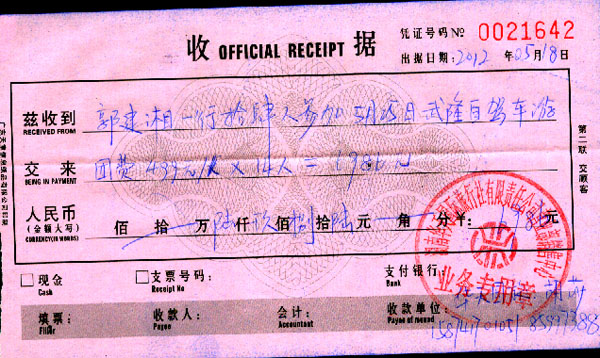 凭证号码№ 0021642
收 OFFICIAL RECEIPT 据
出据日期: 2012 年 05 月 18 日
兹收到 郭建湘一行拾肆人参加5月25日武隆自驾车游
RECEIVED FROM
交来 团费499元/人×14人=6986元
BEING IN PAYMENT
人民币 佰 拾 万 陆 仟 玖 佰 捌 拾 陆 元 角 分 ¥:
(金额大写)
CURRENCY(IN WORDS)
第二联 交顾客
现金 支票号码: 支付银行:
Cash Receipt No Bank
业务专用章
填票: 收款人: 会计: 收款单位:
Filler Payee Accountant Payee of money